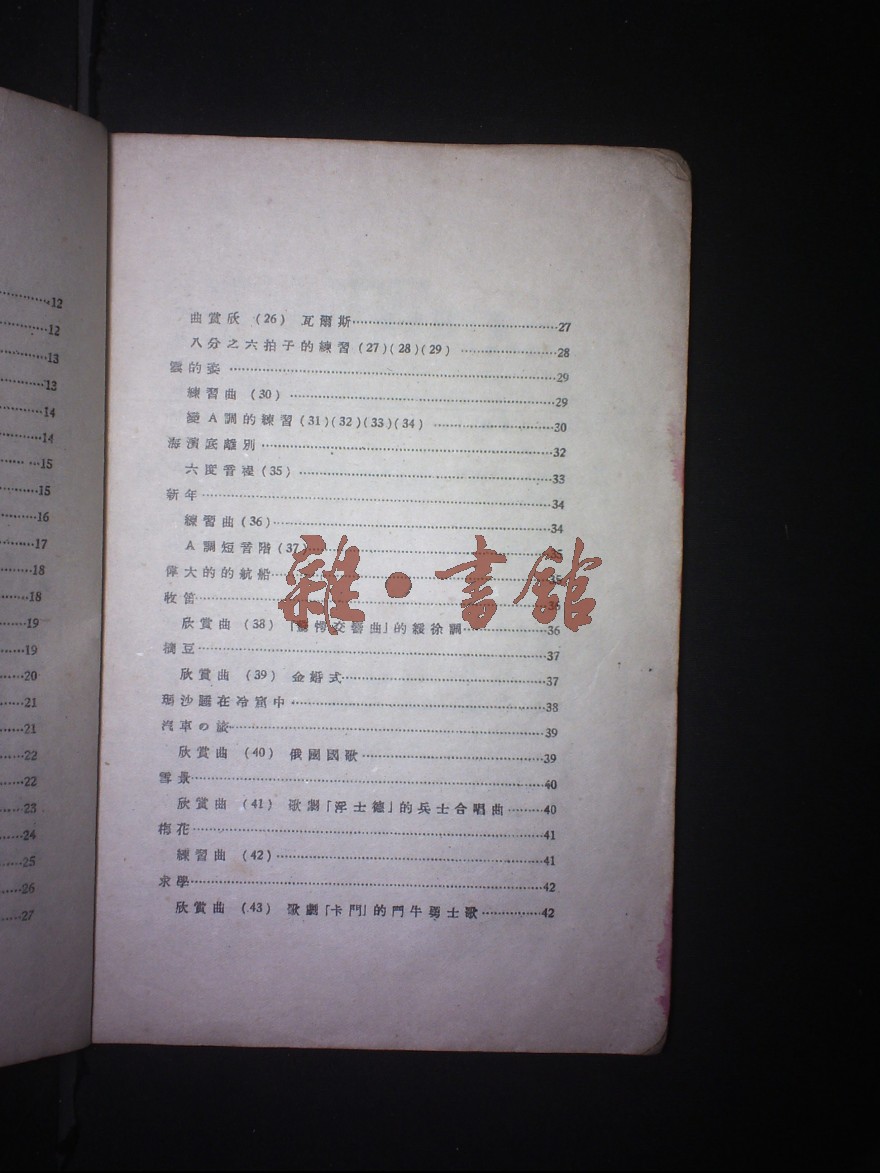 12
12
13
13
14
14
15
15
16
17
18
18
19
19
20
21
21
22
22
23
24
25
26
27
曲賞欣 (26) 瓦爾斯……27
八分之六拍子的練習(27)(28)(29)……28
雲的姿……29
練習曲 (30)……29
變A調的練習(31)(32)(33)(34)……30
海濱底離別……32
六度音程(35)……33
新年……34
練習曲(36)……34
A調短音階(37)……35
偉大的的航船……35
牧笛……36
欣賞曲 (38) 「驚愕交響曲」的緩徐調……36
摘豆……37
欣賞曲 (39) 金婚式……37
瑪沙騷在冷窟中……38
汽車の旅……39
欣賞曲 (40) 俄國國歌……39
雪景……40
欣賞曲 (41) 歌劇「浮士德」的兵士合唱曲……40
梅花……41
練習曲 (42)……41
求學……42
欣賞曲 (43) 歌劇「卡門」的鬥牛勇士歌……42
雜·書館